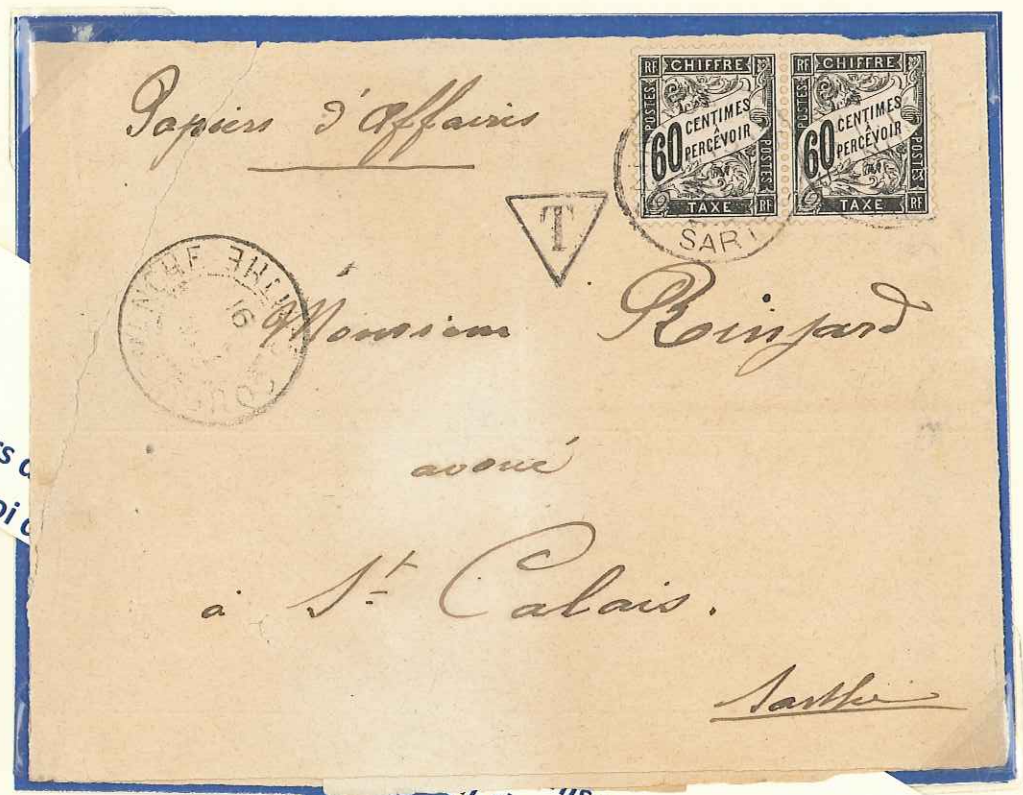 Papiers d'Affaires
RF CHIFFRE
POSTES
60 CENTIMES
À
PERCEVOIR
POSTES
TAXE RF
RF CHIFFRE
POSTES
60 CENTIMES
À
PERCEVOIR
POSTES
TAXE RF
T
SART
16
Monsieur Rinjard
avoué
à St Calais.
Sarthe